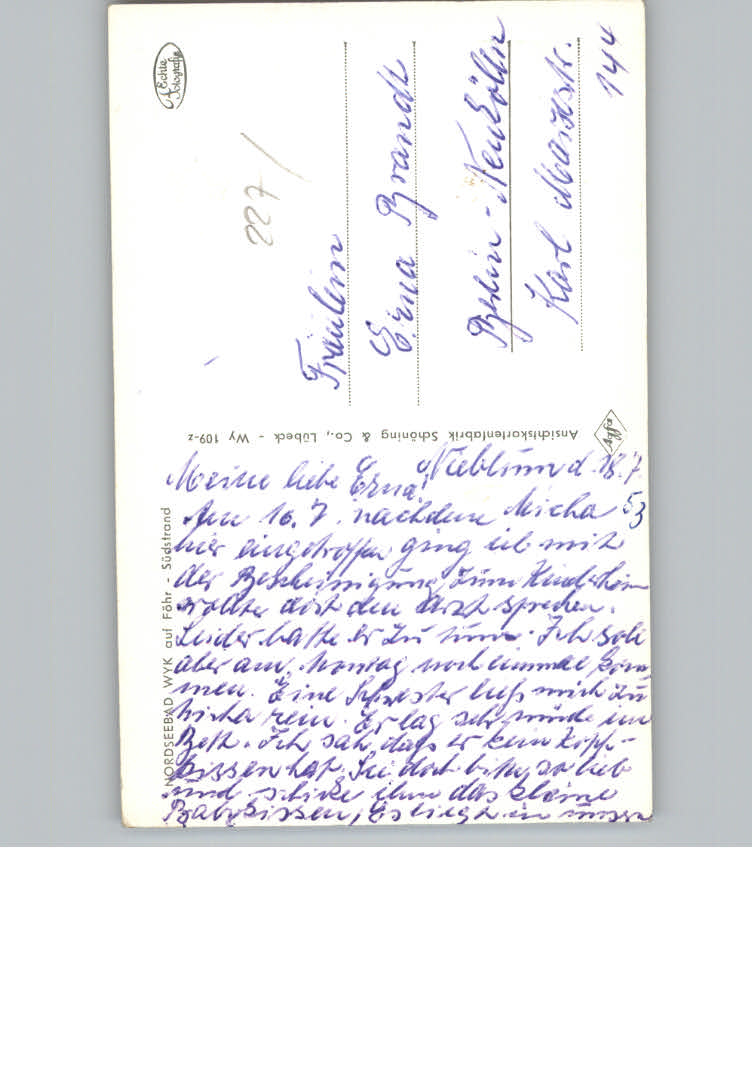 Echte
Fotografie
227/
Fräulein
Erna Brandt
Berlin-Neukölln
Karl Marxstr.
144
Ansichtskartenfabrik Schöning & Co., Lübeck - Wy 109-z
NORDSEEBAD WYK auf Föhr - Südstrand
Nieblum d. 18.7.
53
Meine liebe Erna!
Am 16.7. nachdem Micha
hier eingetroffen ging ich mit
der Bescheinigung zum Kinderheim
wollte dort den Arzt sprechen.
Leider hatte er zu tun. Ich soll
aber am Montag noch einmal kom
men. Eine Schwester ließ mich zu
Micha rein. Er lag sehr müde im
Bett. Ich sah, daß er kein Kopf-
kissen hat. Sei doch bitte so lieb
und schicke ihm das kleine
Babykissen, Es liegt in unserm